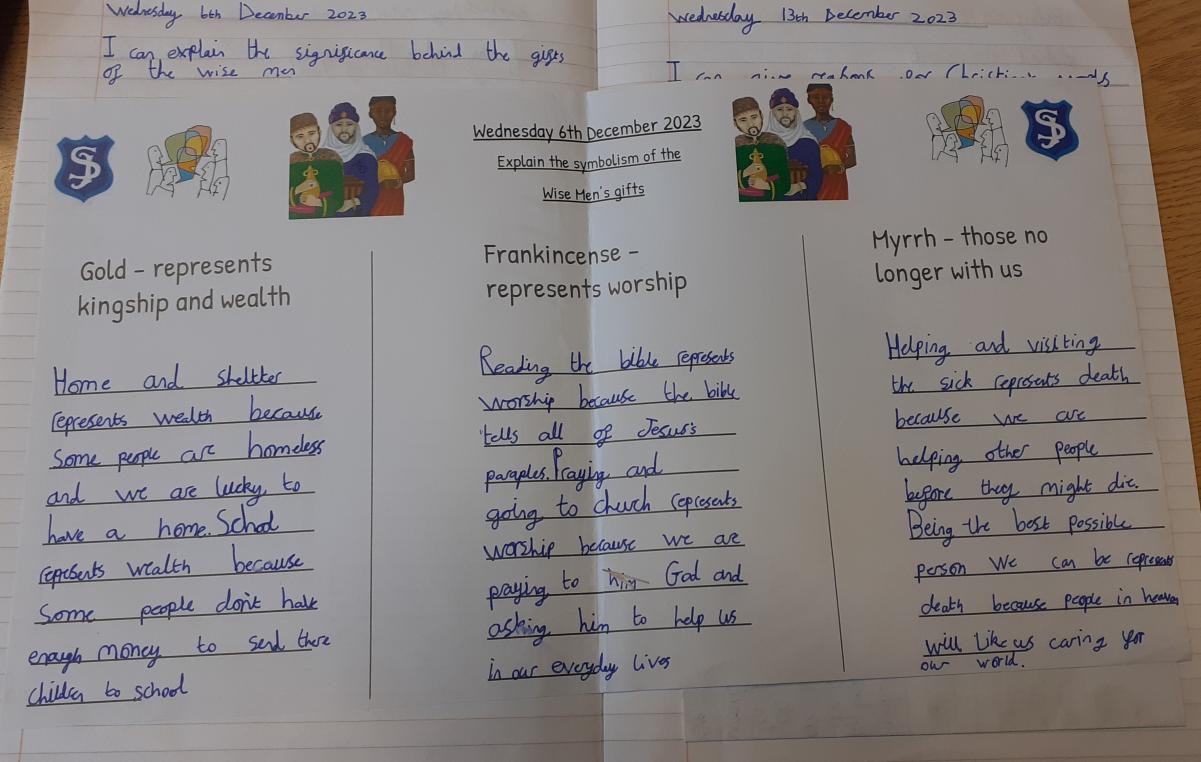 Wednesday 6th December 2023
I can explain the significance behind the gifts
of the wise men
Wednesday 13th December 2023
I can
Wednesday 6th December 2023
Explain the symbolism of the
Wise Men's gifts
Gold - represents
kingship and wealth
Home and sheltker
represents wealth because
Some people are homeless
and we are lucky to
have a home. School
represents wealth because
Some people don't have
enough money to send there
children to school
Frankincense -
represents worship
Reading the bible represents
worship because the bible
tells all of Jesus's
paraples. Praying and
going to church represents
worship because we are
praying to him God and
asking him to help us
in our everyday lives
Myrrh - those no
longer with us
Helping and visiting
the sick represents death
because we are
helping other people
before they might die.
Being the best possible
person we can be represents
death because people in heaven
will like us caring for
our world.